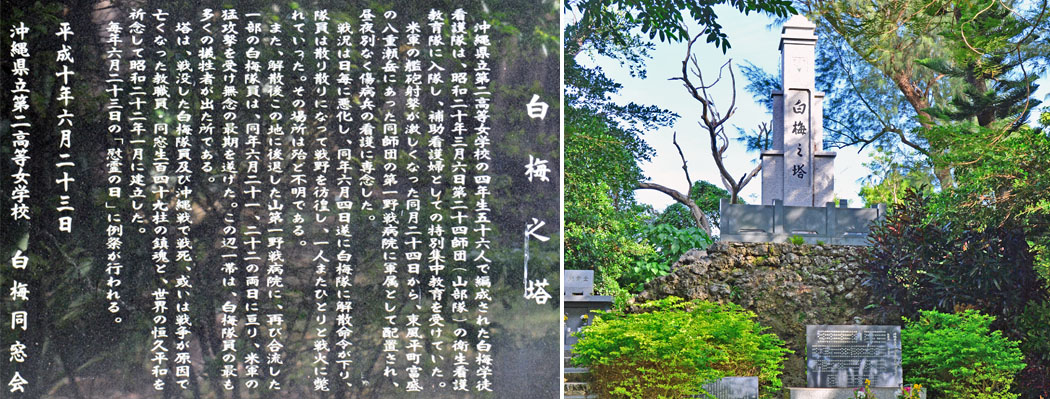 白梅之塔
沖縄県立第二高等女学校の四年生五十六人で編成された白梅学徒
看護隊は、昭和二十年三月六日第二十四師団(山部隊)の衛生看護
教育隊に入隊し、補助看護婦としての特別集中教育を受けていた。
米軍の艦砲射撃が激しくなった同月二十四日から、東風平町富盛
の八重瀬岳にあった同師団の第一野戦病院に軍属として配置され、
昼夜別なく傷病兵の看護に専念した。
戦況は日毎に悪化し、同年六月四日遂に白梅隊に解散命令が下り、
隊員は散り散りになって戦野を彷徨し、一人またひとりと戦火に斃
れていった。その場所は殆ど不明である。
また、解散後この地に後退した山第一野戦病院に、再び合流した
一部の白梅隊員は、同年六月二十一、二十二の両日に亘り、米軍の
猛攻撃を受け無念の最期を遂げた。この辺一帯は、白梅隊員の最も
多くの犠牲者が出た所である。
塔は、戦没した白梅隊員及び沖縄戦で戦死、或いは戦争が原因で
亡くなった教職員・同窓生百四十九柱の鎮魂と、世界の恒久平和を
祈念して昭和二十二年一月に建立した。
毎年六月二十三日の「慰霊の日」に例祭が行われる。
平成十年六月二十三日
沖縄県立第二高等女学校 白梅同窓会
白梅之塔